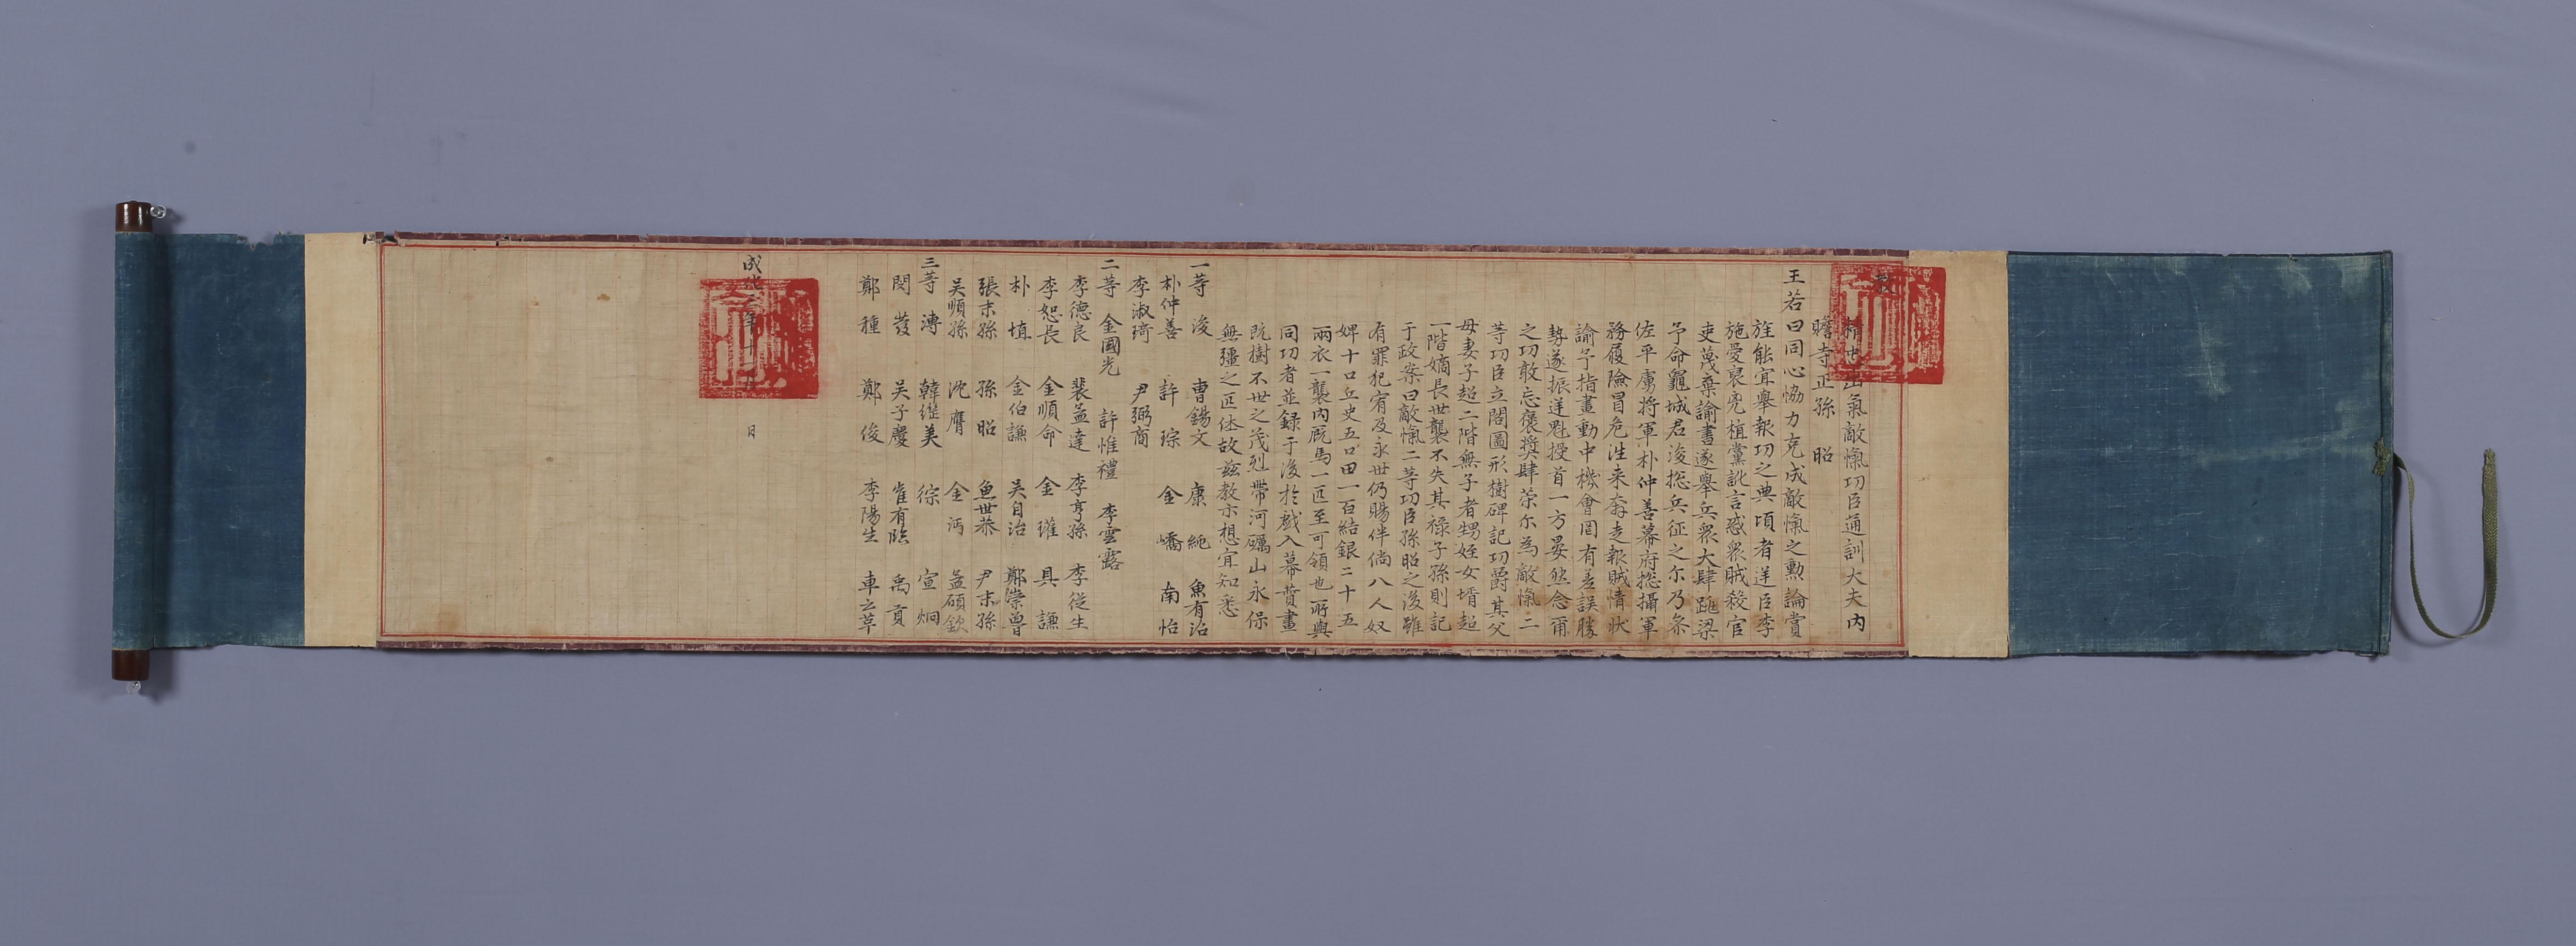 教
精忠出氣敵愾功臣通訓大夫內
贍寺正孫 昭
王若曰同心協力克成敵愾之勳論賞
旌能宜舉報功之典頃者逆臣李
施愛裒兇植黨訛言惑衆賊殺官
吏蔑棄諭書遂擧兵衆大肆跳梁
予命龜城君浚摠兵征之尒乃參
佐平虜將軍朴仲善幕府摠攝軍
務履險冒危往來奔走報賊情狀
諭予指畫動中機會罔有差誤勝
勢遂振逆魁授首一方晏然念爾
之功敢忘褒奬肆策尒爲敵愾二
等功臣立閣圖形樹碑記功爵其父
母妻子超二階無子者甥姪女壻超
一階嫡長世襲不失其祿子孫則記
于政案曰敵愾二等功臣孫昭之後雖
有罪犯宥及永世仍賜伴倘八人奴
婢十口丘史五口田一百結銀二十五
兩衣一襲內廐馬一匹至可領也所與
同功者並録于後於戱入幕賛畫
旣樹不世之茂烈帶河礪山永保
無彊之匹休故兹教示想宜知悉
一等 浚 曺錫文 康純 魚有沼
朴仲善 許琮 金嶠 南怡
李淑琦 尹弼商
二等 金國光 許惟禮 李雲露
李德良 裴孟達 李亨孫 李從生
李恕長 金順命 金瓘 具謙
朴埴 金伯謙 吴自治 鄭崇魯
張末孫 孫昭 魚世恭 尹末孫
吴順孫 沈膺 金沔 孟碩欽
三等 溥 韓繼美 徖 宣炯
閔發 吴子慶 崔有臨 禹貢
鄭種 鄭俊 李陽生 車云革
成化三年十一月 日